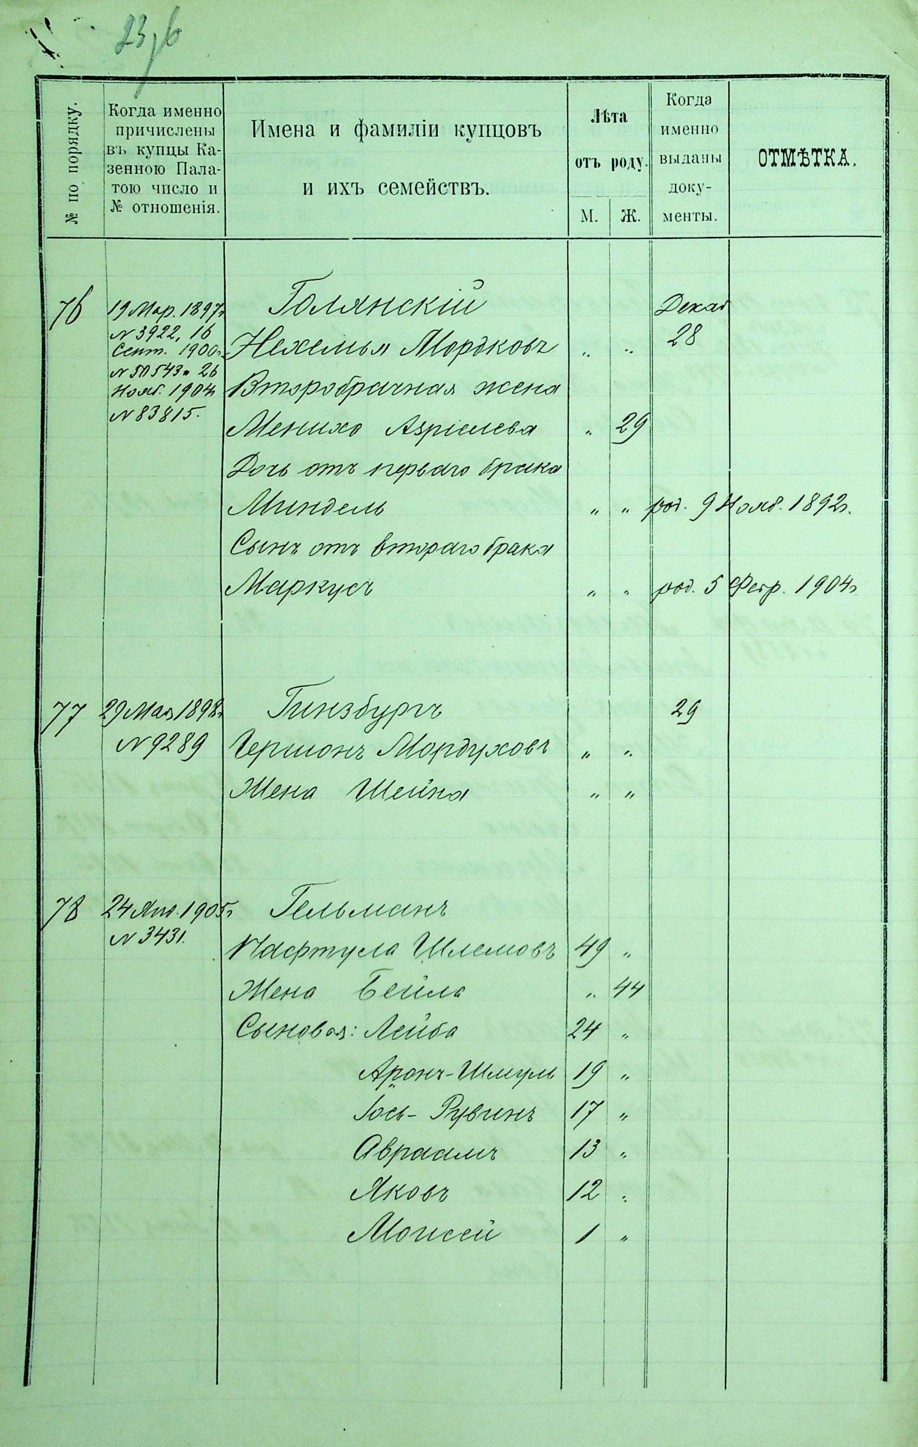 23 б
№ по порядку.
Когда именно
причислены
въ купцы Ка-
зенною Пала-
тою число и
№ отношенія.
Имена и фамиліи купцовъ
и ихъ семействъ.
Лѣта
отъ роду.
М. Ж.
Когда
именно
выданы
доку-
менты.
ОТМѢТКА.
76 19 Мар. 1897 г. Голянскій Декаб
N 3922, 16 28
Сент. 1900 г. Нехемья Мордковъ „ „
N 50543 26 Второбрачная жена
Нояб. 1904
N 83815. Менихо Азріелева „ 29
Дочь отъ перваго брака
Миндель „ „ род. 9 Нояб. 1892 г.
Сынъ отъ втораго брака
Маркусъ „ „ род. 5 Февр. 1904 г.
77 29 Мая 1898 г. Гинзбургъ 29
N 9289 Гершонъ Мордуховъ „ „
Жена Шейна „ „
78 24 Янв. 1905 г. Гельманъ
N 3431. Нафтула Шлемовъ 49 „
Жена Бейла „ 44
Сыновья: Лейба 24 „
Аронъ-Шмуль 19 „
Іось-Рувинъ 17 „
Авраамъ 13 „
Яковъ 12 „
Моисей 1 „